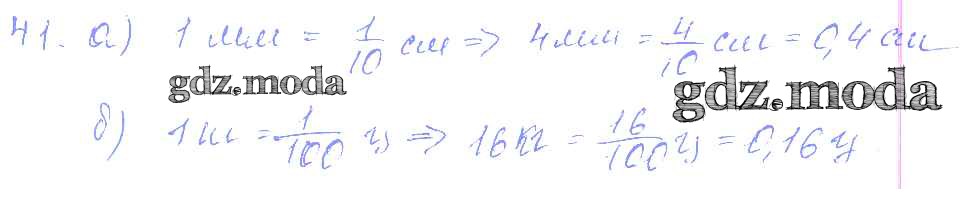 41. а) 1 мм = 1/10 см => 4 мм = 4/10 см = 0,4 см
gdz.moda
gdz.moda
б) 1 кг = 1/100 ц => 16 кг = 16/100 ц = 0,16 ц